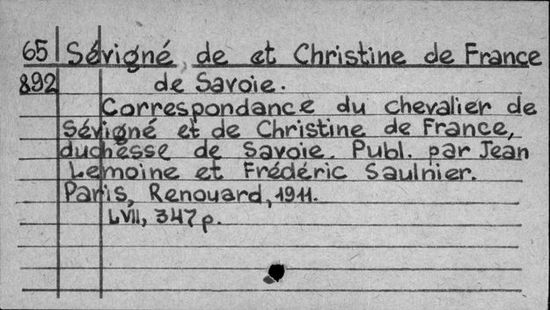 65 Sévigné, de et Christine de France
892 de Savoie.
Correspondance du chevalier de
Sévigné et de Christine de France,
duchesse de Savoie. Publ. par Jean
Lemoine et Frédéric Saulnier.
Paris, Renouard, 1911.
LVII, 347 p.